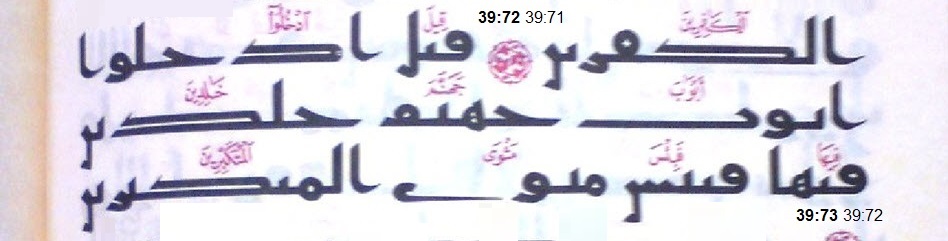 39:72 39:71
الكفرين قيل ادخلوا
ٱلْكَافِرِينَ قِيلَ ٱدْخُلُوٓا
ابوب جهنم خلدين
أَبْوَٰبَ جَهَنَّمَ خَالِدِينَ
فيها فبئس مثوى المتكبرين
فِيهَا فَبِئْسَ مَثْوَى ٱلْمُتَكَبِّرِينَ
39:73 39:72